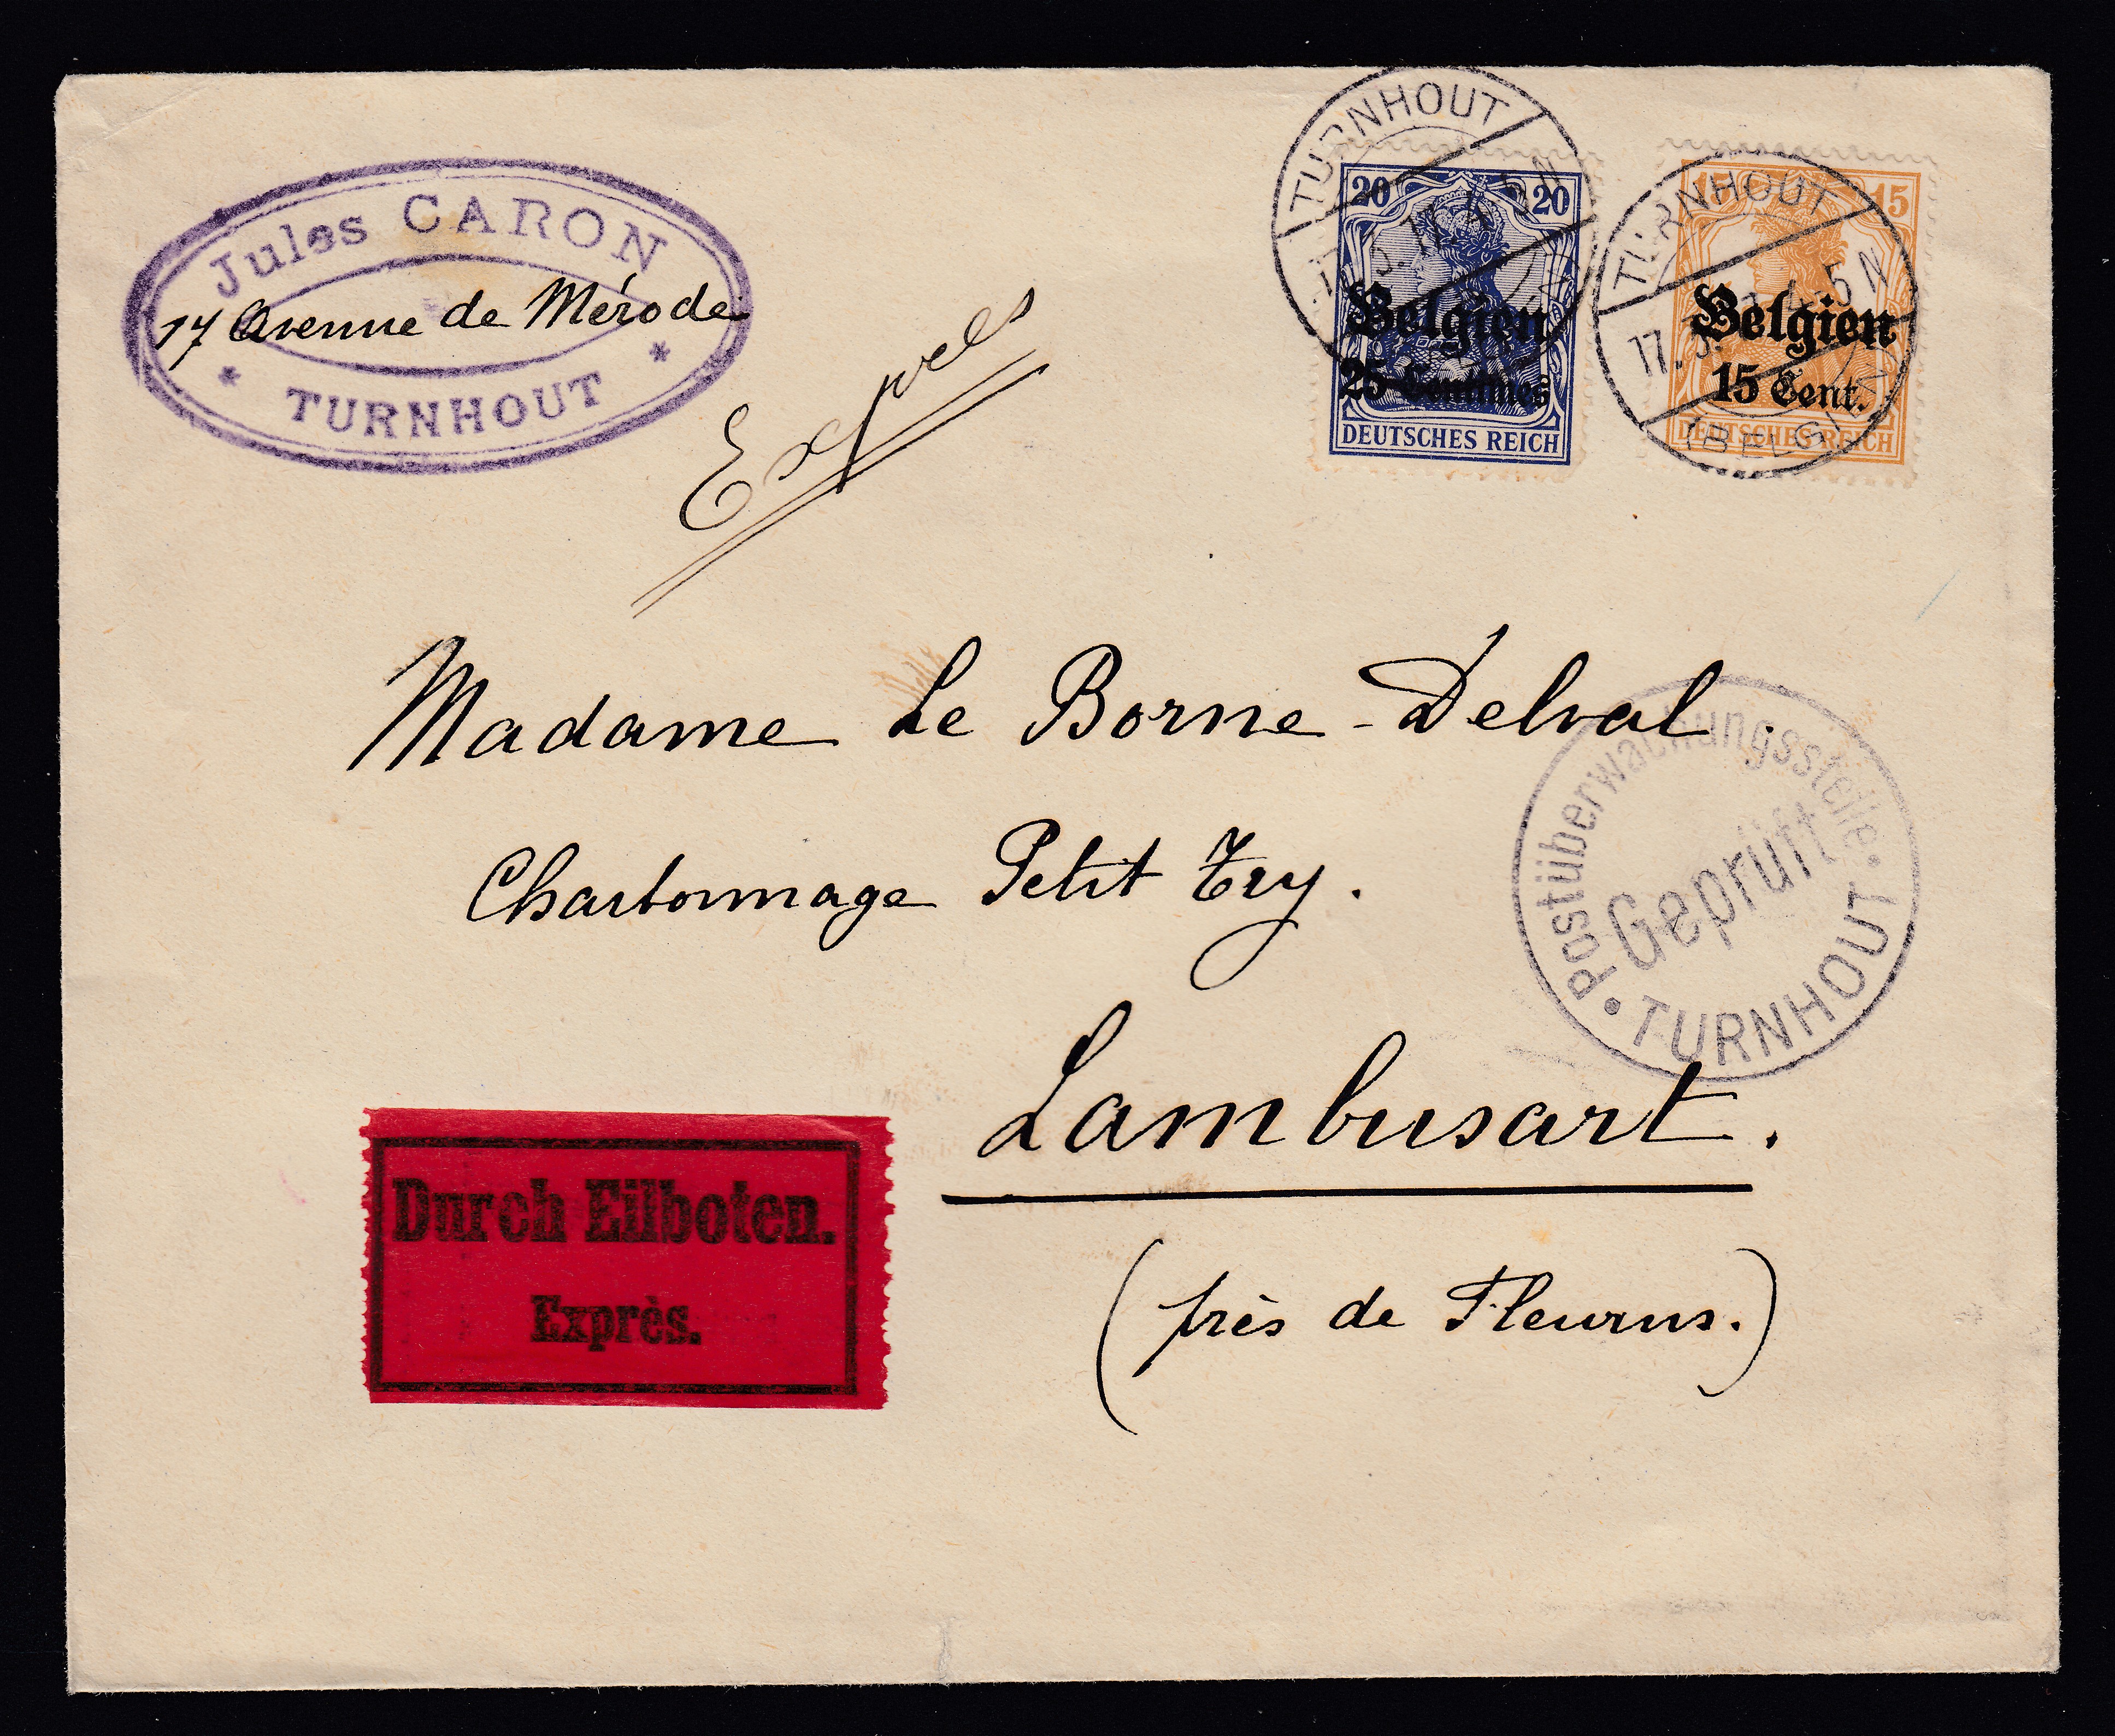 Jules CARON
17 Avenue de Mérode
* TURNHOUT *
Exprès
TURNHOUT
20 20
Belgien
25 Centimes
DEUTSCHES REICH
TURNHOUT
15
17. 4-5 N
Belgien
15 Cent.
DEUTSCHES REICH
(BELG
Madame Le Borne-Delval.
Charbonnage Petit Try.
Lambusart.
(près de Fleurus.)
Postüberwachungsstelle
Geprüft
TURNHOUT
Durch Eilboten.
Exprès.